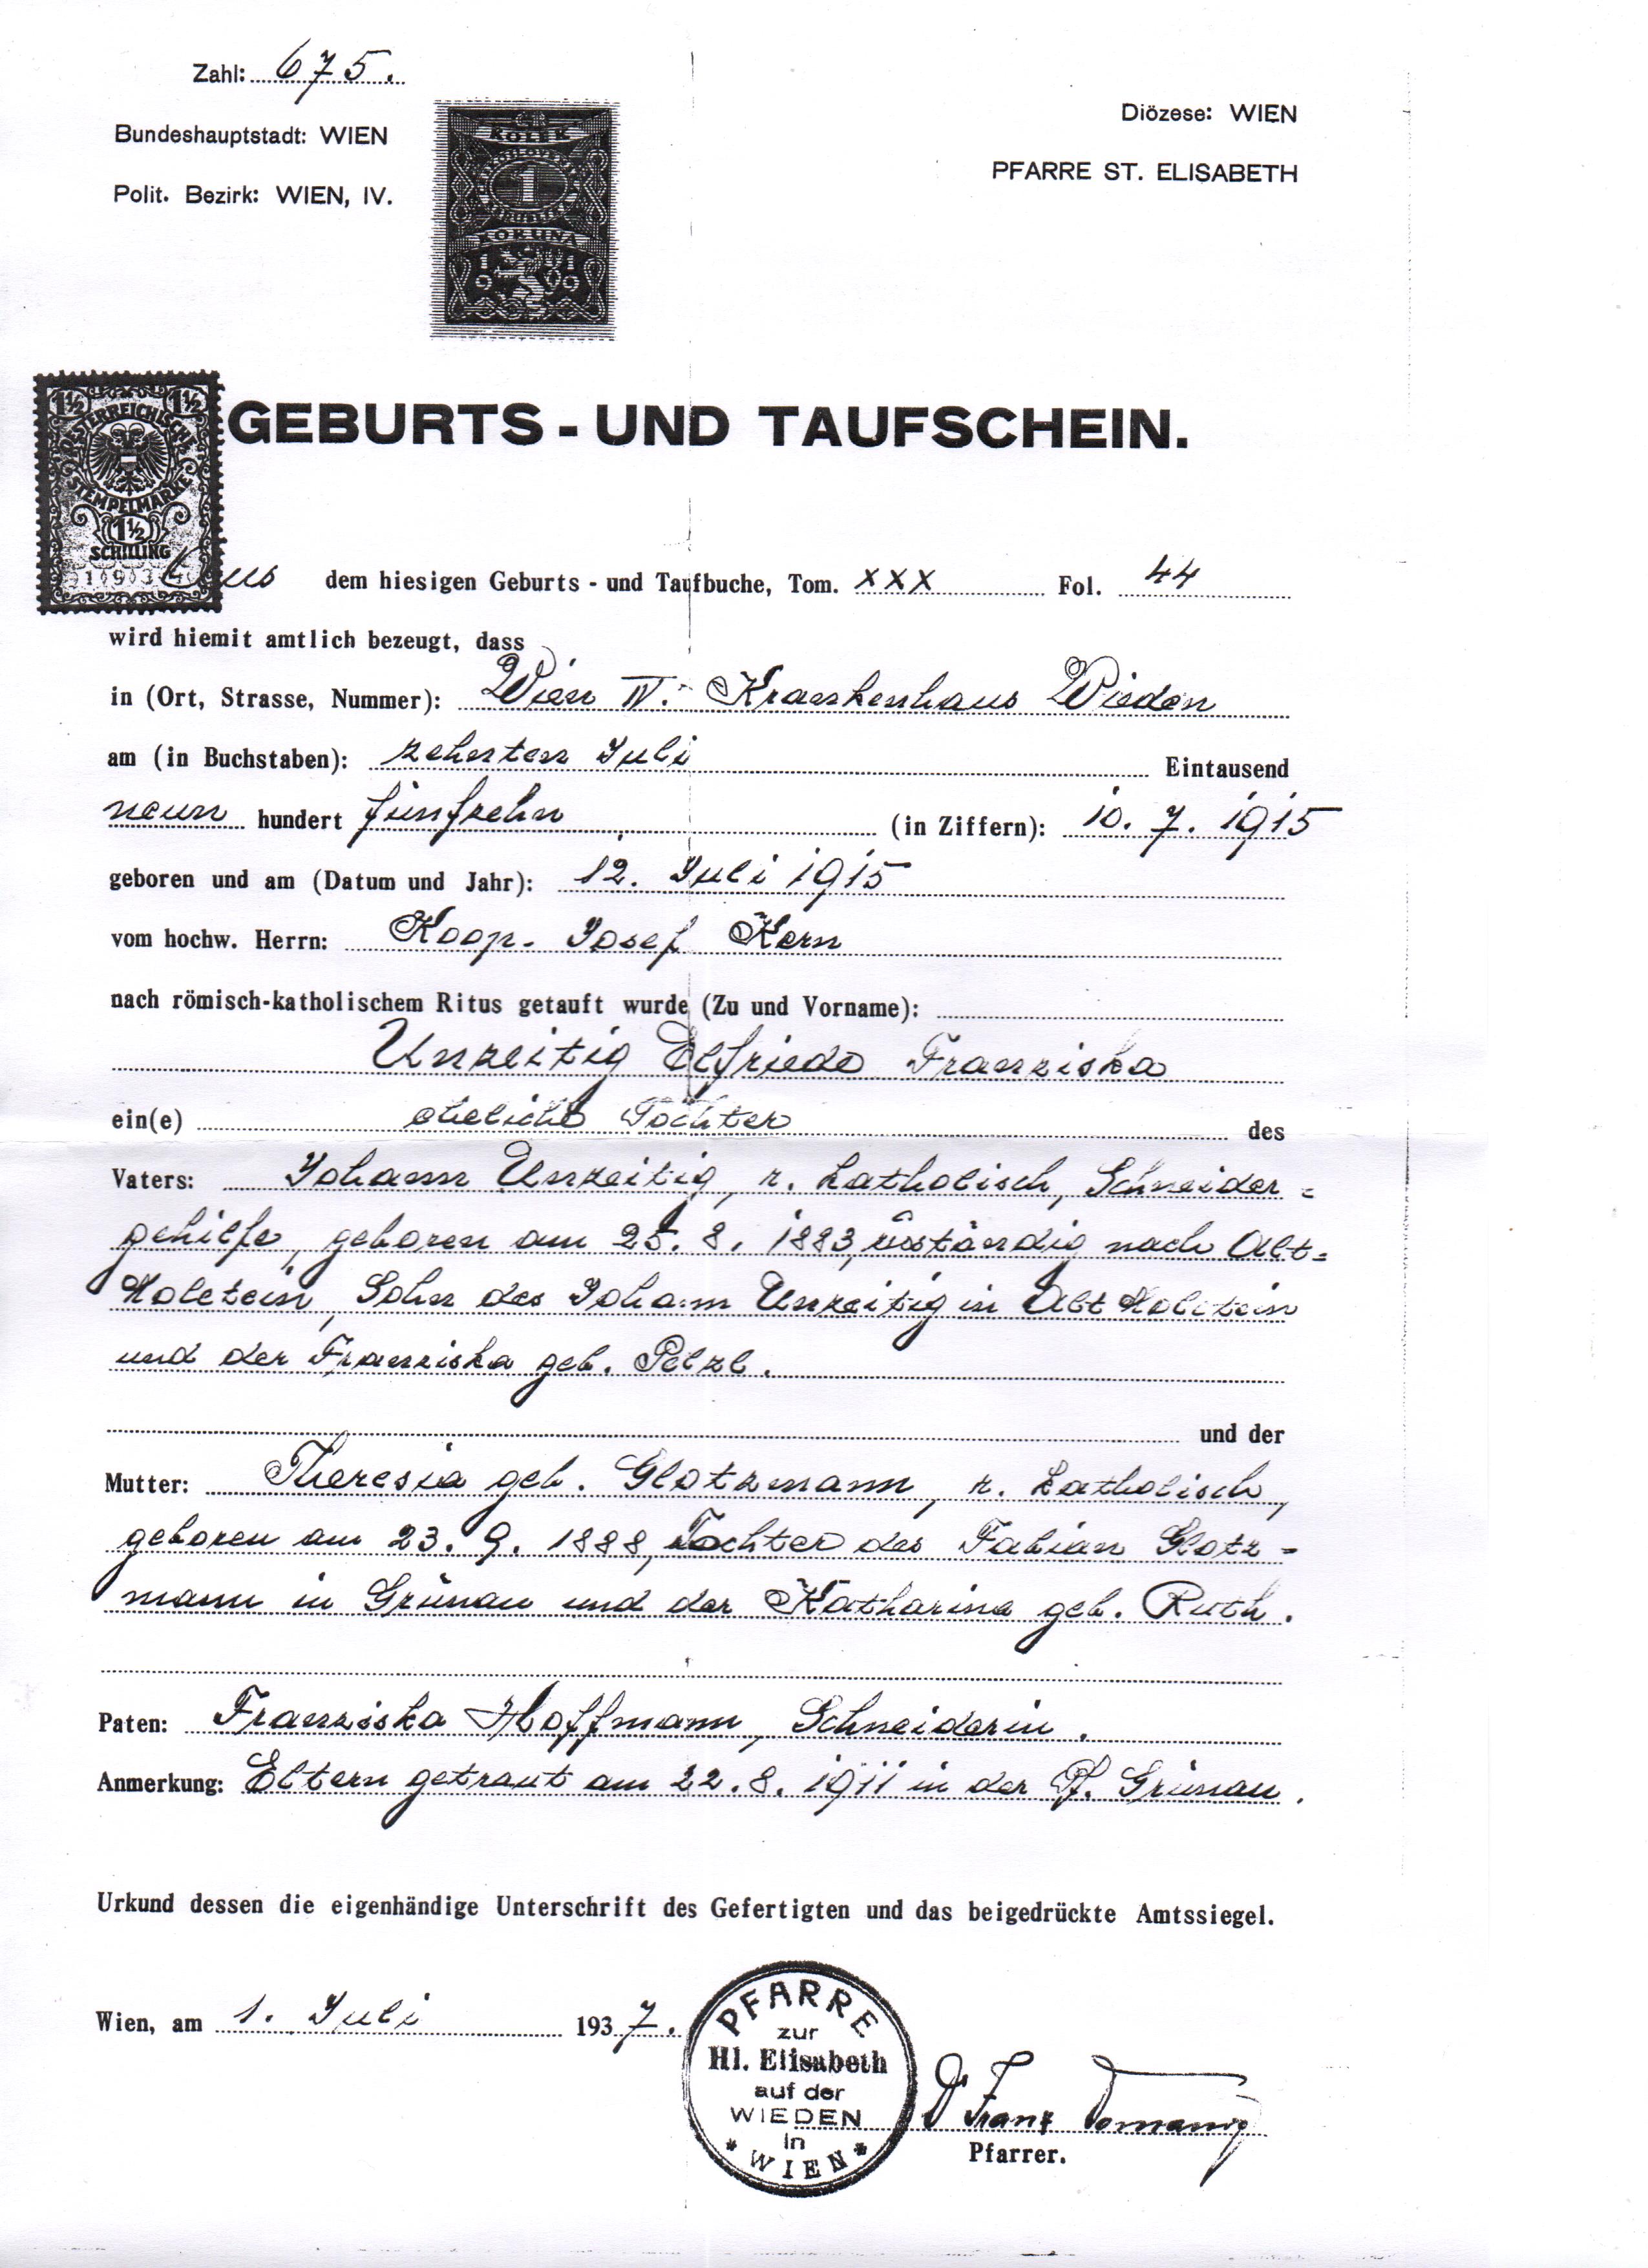 Zahl: 675.
Bundeshauptstadt: WIEN
Polit. Bezirk: WIEN, IV.
KOLEK
1
KORUNA
1919
Diözese: WIEN
PFARRE ST. ELISABETH
1½ 1½
ÖSTERREICHISCHE
STEMPELMARKE
1½
SCHILLING
GEBURTS - UND TAUFSCHEIN.
Aus dem hiesigen Geburts - und Taufbuche, Tom. XXX Fol. 44
wird hiemit amtlich bezeugt, dass
in (Ort, Strasse, Nummer): Wien IV. Krankenhaus Wieden
am (in Buchstaben): zehnten Juli Eintausend
neun hundert fünfzehn (in Ziffern): 10. 7. 1915
geboren und am (Datum und Jahr): 12. Juli 1915
vom hochw. Herrn: Koop. Josef Kern
nach römisch-katholischem Ritus getauft wurde (Zu und Vorname):
Unzeitig Elfriede Franziska
ein(e) eheliche Tochter des
Vaters: Johann Unzeitig, r. katholisch, Schneider=
gehilfe, geboren am 25. 8. 1883, zuständig nach Alt=
Moletein, Sohn des Johann Unzeitig in Alt Moletein
und der Franziska geb. Pelzl.
und der
Mutter: Theresia geb. Glotzmann, r. katholisch,
geboren am 23. 9. 1888, Tochter des Fabian Glotz=
mann in Grünau und der Katharina geb. Ruth.
Paten: Franziska Hoffmann, Schneiderin.
Anmerkung: Eltern getraut am 22. 8. 1911 in der Pf. Grünau.
Urkund dessen die eigenhändige Unterschrift des Gefertigten und das beigedrückte Amtssiegel.
Wien, am 1. Juli 1937.
PFARRE
zur
Hl. Elisabeth
auf der
WIEDEN
in
* WIEN *
Dr Franz Domanig
Pfarrer.